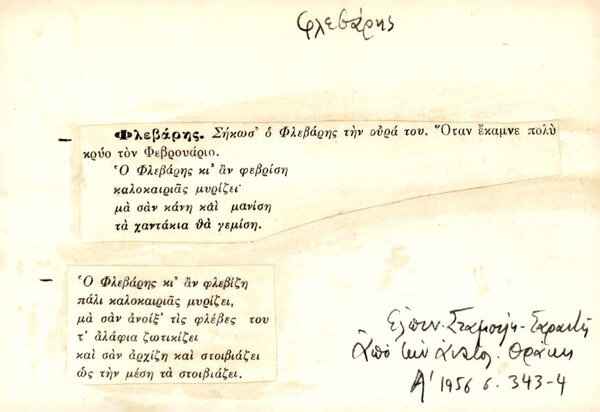 Φλεβάρης
Φλεβάρης. Σήκωσ' ὁ Φλεβάρης τὴν οὐρά του. Ὅταν ἔκαμνε πολὺ
κρύο τὸν Φεβρουάριο.
Ὁ Φλεβάρης κι' ἂν φεβρίση
καλοκαιριᾶς μυρίζει·
μὰ σὰν κάνη καὶ μανίση
τὰ χαντάκια θὰ γεμίση.
Ὁ Φλεβάρης κι' ἂν φλεβίζη
πάλι καλοκαιριᾶς μυρίζει,
μὰ σὰν ἀνοίξ' τὶς φλέβες του
τ' ἀλάφια ζωτικίζει
καὶ σὰν ἀρχίζη καὶ στοιβιάζει
ὡς τὴν μέση τὰ στοιβιάζει.
Ἐλπιν. Σταμούλη-Σαραντῆ
Ἀπὸ τὴν Ἀνατολ. Θράκη
Α' 1956 σ. 343-4